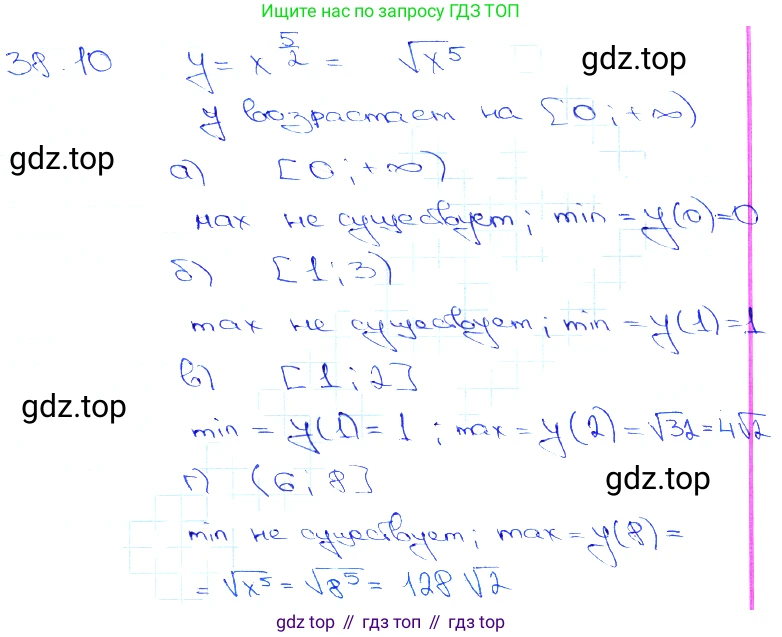 Ищите нас по запросу ГДЗ ТОП
38.10 y = x^(5/2) = √x⁵
gdz.top
y возрастает на [0; +∞)
gdz.top
а) [0; +∞)
max не существует; min = y(0) = 0
б) [1; 3)
max не существует; min = y(1) = 1
в) [1; 2]
gdz.top
min = y(1) = 1 ; max = y(2) = √32 = 4√2
г) (6; 8]
gdz.top
min не существует; max = y(8) =
= √x⁵ = √8⁵ = 128√2
gdz.top // гдз топ // гдз.top